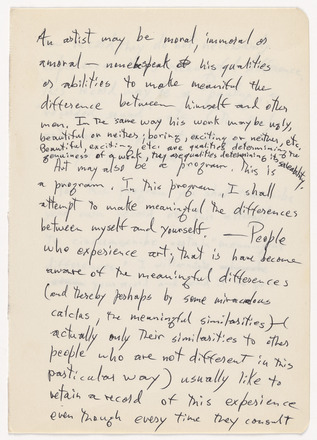 An artist may be moral, immoral or
amoral — none bespeak his qualities
or abilities to make meaniful the
difference between himself and other
men. In the same way his work may be ugly,
beautiful or neither; boring, exciting or neither, etc.
Beautiful, exciting etc. are qualities determining the
genuiness of a work, they are qualities determining its saleability.
Art may also be a program. This is
a program. In this program, I shall
attempt to make meaningful the differences
between myself and yourself. — People
who experience art; that is have become
aware of the meaningful differences
(and thereby perhaps by some miraculous
calclus, the meaningful similarities) — (
actually only their similarities to other
people who are not different in this
particular way) usually like to
retain a record of this experience
even though every time they consult